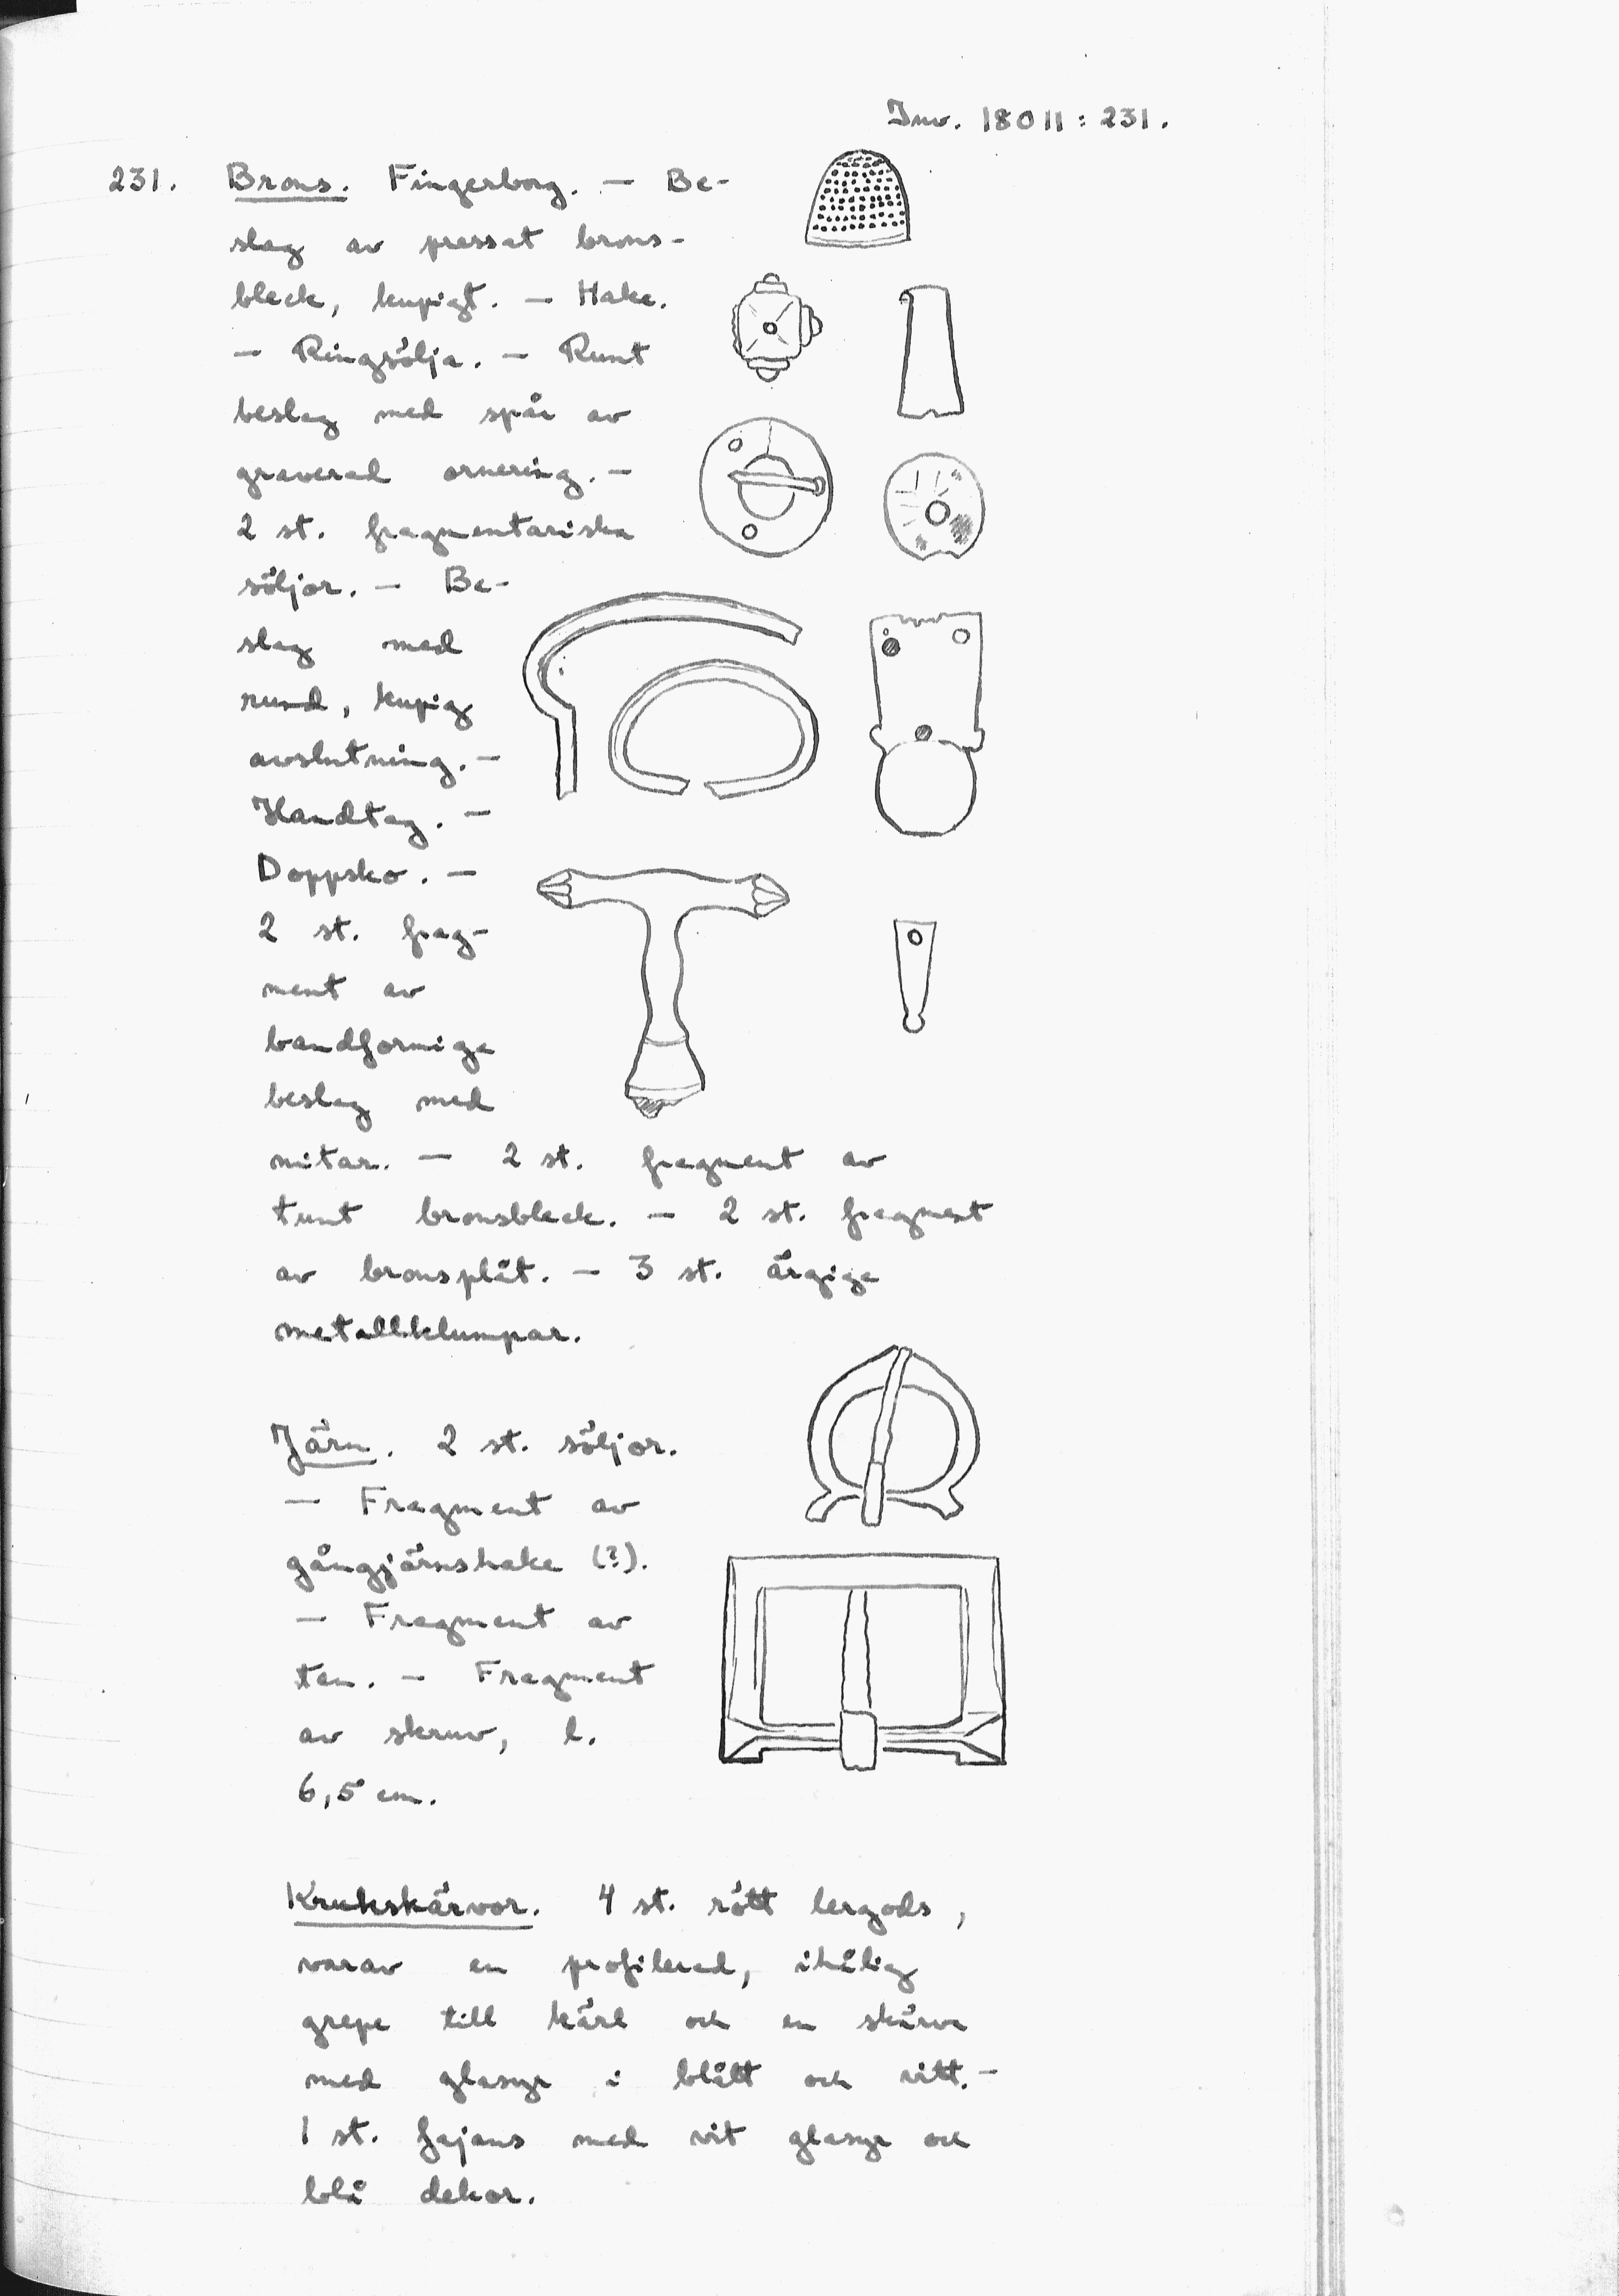 Inv. 18011:231.
231. Brons. Fingerborg. — Be-
slag av pressat brons-
bleck, kupigt. — Hake.
— Ringsölja. — Runt
beslag med spår av
graverad ornering. —
2 st. fragmentariska
söljor. — Be-
slag med
rund, kupig
avslutning. —
Handtag. —
Doppsko. —
2 st. frag-
ment av
bandformiga
beslag med
nitar. — 2 st. fragment av
tunt bronsbleck. — 2 st. fragment
av bronsplåt. — 3 st. ärgiga
metallklumpar.
Järn. 2 st. söljor.
— Fragment av
gångjärnshake (?).
— Fragment av
ten. — Fragment
av skruv, l.
6,5 cm.
Krukskärvor. 4 st. rött lergods,
varav en profilerad, ihålig
grepe till kärl och en skärva
med glasyr i blått och vitt. —
1 st. fajans med vit glasyr och
blå dekor.